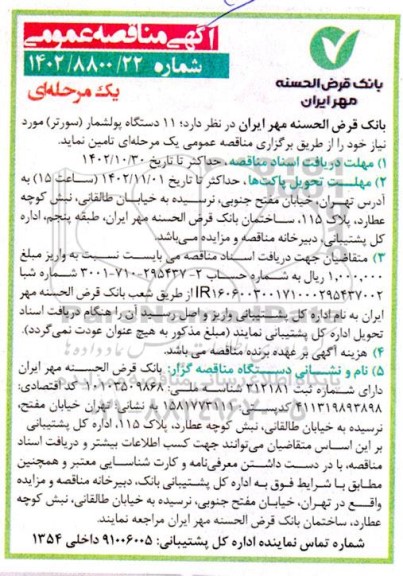 آگهی مناقصه عمومی
شماره ۱۴۰۲/۸۸۰۰/۲۲
یک مرحله‌ای
بانک قرض الحسنه
مهر ایران
بانک قرض الحسنه مهر ایران در نظر دارد؛ ۱۱ دستگاه پولشمار (سورتر) مورد
نیاز خود را از طریق برگزاری مناقصه عمومی یک مرحله‌ای تامین نماید.
۱) مهلت دریافت اسناد مناقصه، حداکثر تا تاریخ ۱۴۰۲/۱۰/۳۰
۲) مهلت تحویل پاکت‌ها، حداکثر تا تاریخ ۱۴۰۲/۱۱/۰۱ (ساعت ۱۵) به
آدرس تهران، خیابان مفتح جنوبی، نرسیده به خیابان طالقانی، نبش کوچه
عطارد، پلاک ۱۱۵، ساختمان بانک قرض الحسنه مهر ایران، طبقه پنجم، اداره
کل پشتیبانی، دبیرخانه مناقصه و مزایده می‌باشد.
۳) متقاضیان جهت دریافت اسناد مناقصه می بایست نسبت به واریز مبلغ
۱,۰۰۰,۰۰۰ ریال به شماره حساب ۲-۲۹۵۴۳۷-۷۱۰-۳۰۰۱ شماره شبا
از طریق شعب بانک قرض الحسنه مهر
ایران به نام اداره کل پشتیبانی واریز و اصل رسید آن را هنگام دریافت اسناد
تحویل اداره کل پشتیبانی نمایند (مبلغ مذکور به هیچ عنوان عودت نمی‌گردد).
۴) هزینه آگهی بر عهده برنده مناقصه می باشد.
۵) نام و نشانی دستگاه مناقصه گزار: بانک قرض الحسنه مهر ایران
دارای شماره ثبت ۳۱۲۱۸۱ شناسه ملی: کد اقتصادی:
۴۱۱۳۱۹۸۹۳۸۹۸ کدپستی: به نشانی تهران خیابان مفتح،
نرسیده به خیابان طالقانی، نبش کوچه عطارد، پلاک ۱۱۵، اداره کل پشتیبانی
بر این اساس متقاضیان می‌توانند جهت کسب اطلاعات بیشتر و دریافت اسناد
مناقصه، با در دست داشتن معرفی‌نامه و کارت شناسایی معتبر و همچنین
مطابق با شرایط فوق به اداره کل پشتیبانی بانک، دبیرخانه مناقصه و مزایده
واقع در تهران، خیابان مفتح جنوبی، نرسیده به خیابان طالقانی، نبش کوچه
عطارد، ساختمان بانک قرض الحسنه مهر ایران مراجعه نمایند.
شماره تماس نماینده اداره کل پشتیبانی: ۹۱۰۰۶۰۰۵ داخلی ۱۳۵۴